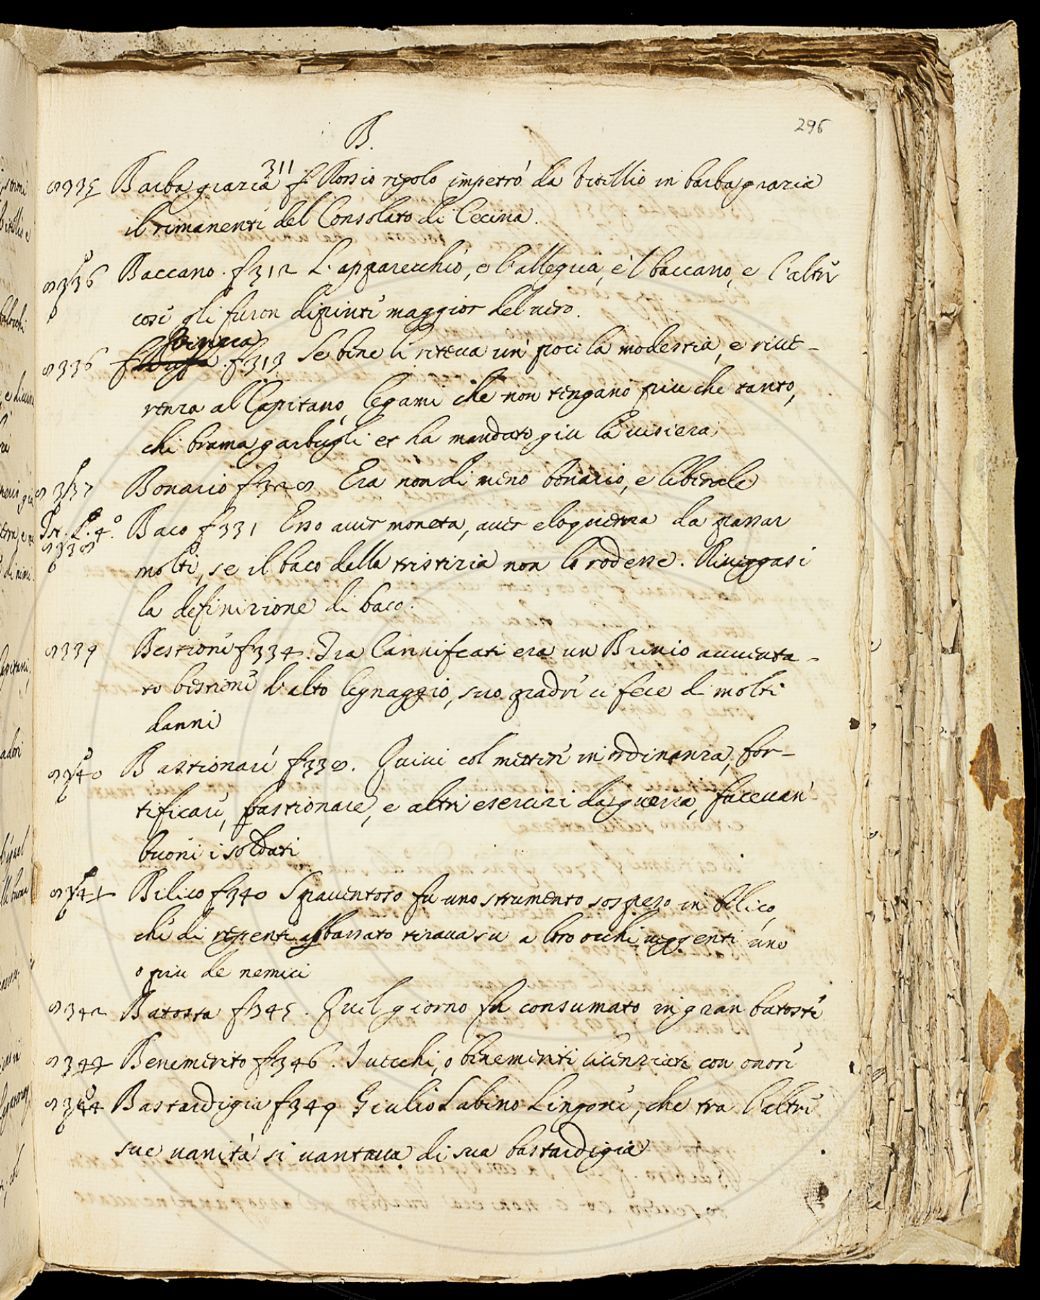 296
B.
335 Barba grazia 311 f. Rossio regolo impetrò da Vitellio in barba grazia
il rimanente del Consolato di Cecina.
336 Baccano. f 312 L'apparecchio, e l'allegria, e'l baccano, e l'altre
cose gli furon dipinte maggior del vero.
336 f 313 Se bene li riteneva un poco la modestia, e rive-
renza al Capitano, legami che non tengano piu che tanto,
chi brama garbugli et ha mandato giu la visiera,
337 Bonario f 328 Era nondimeno bonario, e liberale
338 Baco f 331 Esso aver moneta, aver eloquenza da passar
molti, se il baco della tristizia non lo rodesse. Riveggasi
la definizione di baco.
339 Bestione f 334. Tra Cannifeati era un Brinio avventa-
to bestione d'alto legnaggio, suo padre ci fece di molti
danni
340 Bastionare f 338. Quivi col mettere in ordinanza, for-
tificare, bastionare, e altri esercizi da guerra, facevan
buoni i soldati
341 Bilico f 340 Spaventoso fu uno strumento sospeso in bilico,
che di repente abbassato tirava su a loro occhi veggenti uno
o piu de nemici
342 Batosta f 345. Quel giorno fu consumato in gran batoste
344 Benemerito f 346. I vecchi, o benemeriti licenziati con onore
344 Bastardigia f 349 Giulio Sabino Lingone, che tra l'altre
sue vanità si vantava di sua bastardigia